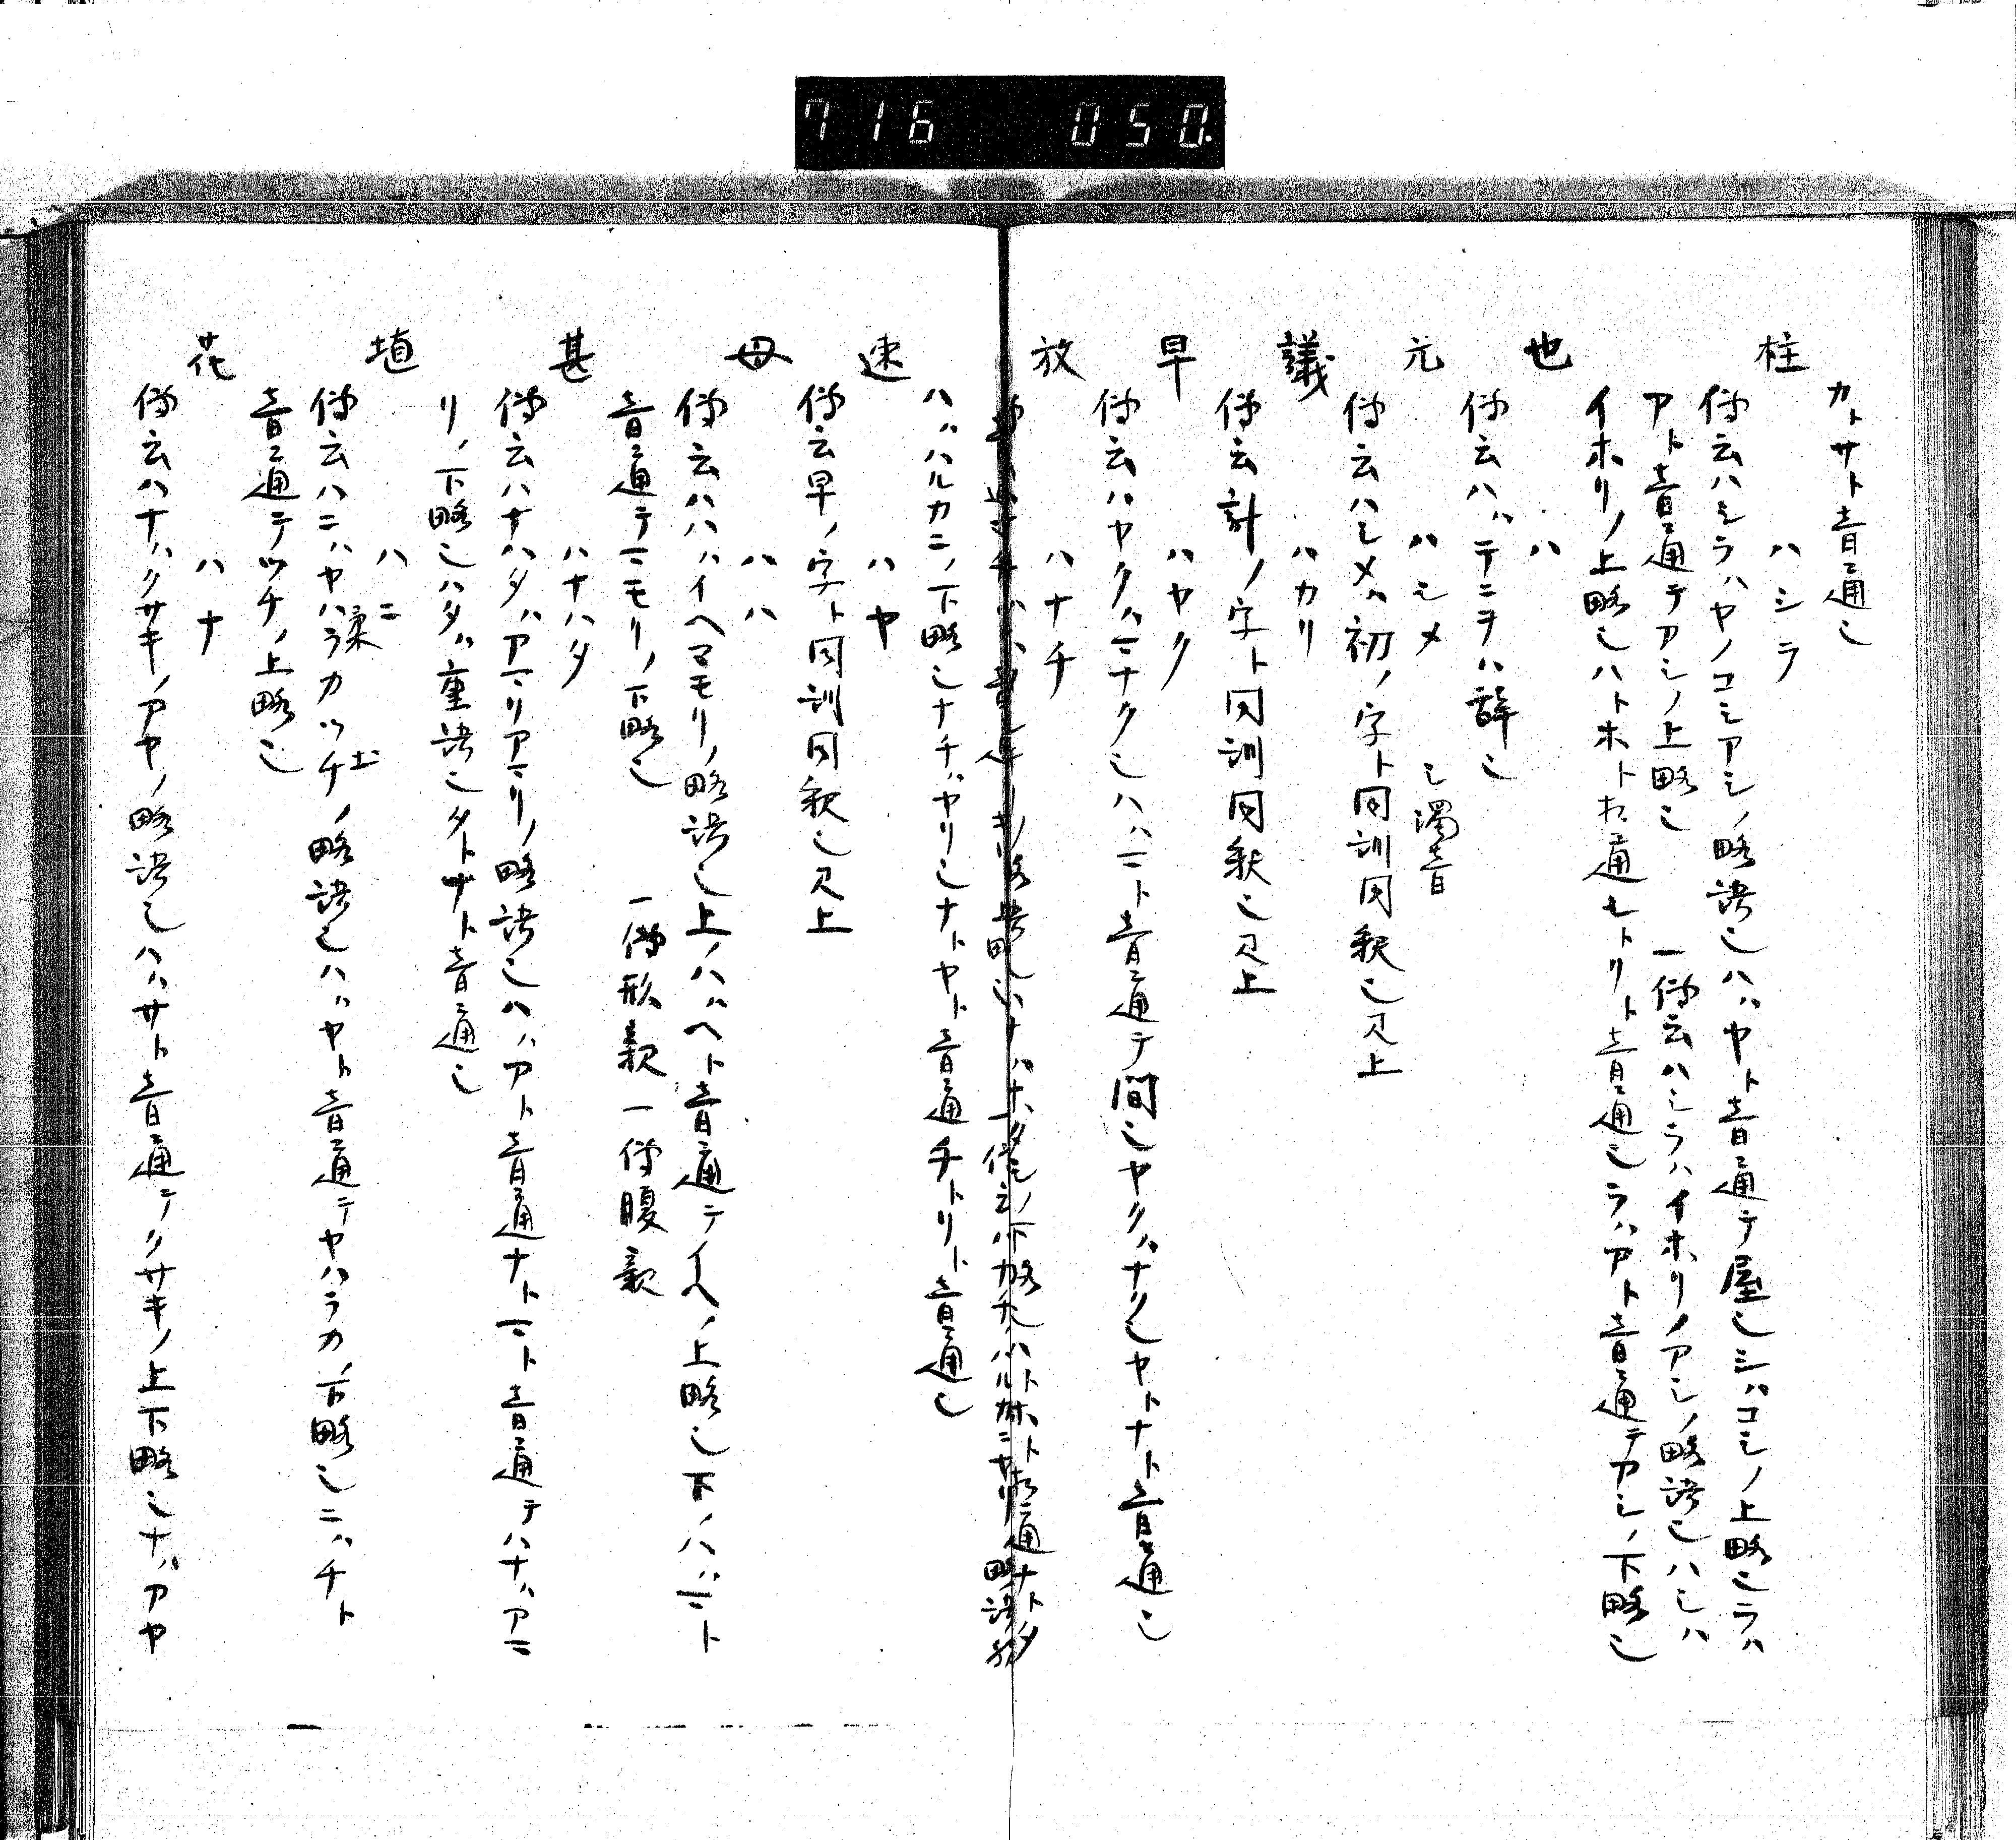 716 050.
カトサト音通也
柱 ハシラ
傳云ハシラハヤノコシアシノ略語也ハヽヤト音通テ屋也シハコシノ上略也ラハ
アト音通テアシノ上略也 一傳云ハシラハイホリノアシノ略語也ハシハ
イホリノ上略也ハトホト音通セトリト音通也ラハアト音通テアシノ下略也
也 ハ
傳云ハヽテニヲハ辞也
元 ハシメ シ濁音
傳云ハシメハ初ノ字ト同訓同釈也見上
議 ハカリ
傳云計ノ字ト同訓同釈也見上
早 ハヤク
傳云ハヤクハマナク也ハヽマト音通テ間也ヤクハナク也ヤトナト音通也
放 ハナチ
ハヽハルカニノ下略也ナチハヤリ也ナトヤト音通チトリト音通也
速 ハヤ
傳云早ノ字ト同訓同釈也見上
母 ハハ
傳云ハハハイヘマモリノ略語也上ノハハヘト音通テイヘノ上略也下ノハハマト
音通テマモリノ下略也 一傳形親 一傳腹親
甚 ハナハタ
傳云ハナハタハアマリアマリノ略語也ハハアト音通ナトマト音通テハナハアマ
リノ下略也ハタハ重語也タトナト音通也
埴 ハニ
傳云ハニハヤハラカツチノ略語也ハハヤト音通テヤハラカノ下略也ニハチト
柔 土
音通テツチノ上略也
花 ハナ
傳云ハナハクサキノアヤノ略語也ハハサト音通テクサキノ上下略也ナハアヤ